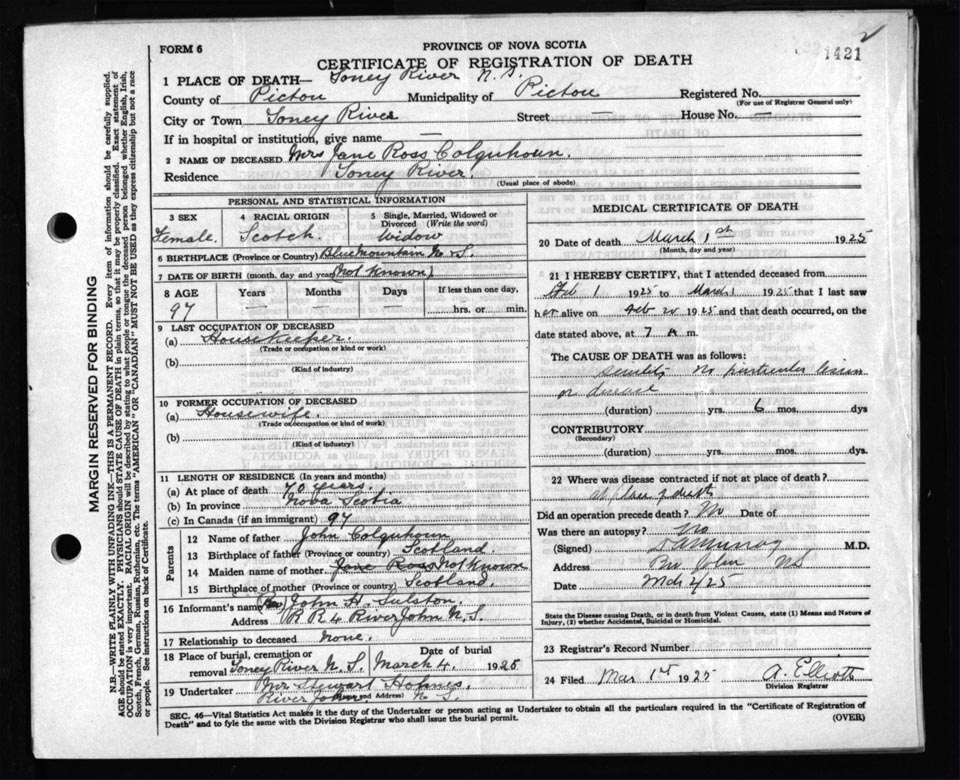 2
1421
FORM 6
PROVINCE OF NOVA SCOTIA
CERTIFICATE OF REGISTRATION OF DEATH
1 PLACE OF DEATH— Toney River N. S.
County of Pictou Municipality of Pictou Registered No.
(For use of Registrar General only)
City or Town Toney River Street — House No. —
If in hospital or institution, give name —
2 NAME OF DECEASED Mrs Jane Ross Colquhoun.
Residence Toney River.
(Usual place of abode)
PERSONAL AND STATISTICAL INFORMATION
3 SEX 4 RACIAL ORIGIN 5 Single, Married, Widowed or Divorced (Write the word)
Female. Scotch. Widow
6 BIRTHPLACE (Province or Country) Blue Mountain N. S.
7 DATE OF BIRTH (month, day and year) (Not Known)
8 AGE Years Months Days If less than one day,
97 — — hrs. or min.
9 LAST OCCUPATION OF DECEASED
(a) Housekeeper.
(Trade or occupation or kind or work)
(b)
(Kind of industry)
10 FORMER OCCUPATION OF DECEASED
(a) Housewife.
(Trade or occupation or kind of work)
(b)
(Kind of industry)
11 LENGTH OF RESIDENCE (In years and months)
(a) At place of death 70 years.
(b) In province Nova Scotia
(c) In Canada (if an immigrant) 97
Parents
12 Name of father John Colquhoun
13 Birthplace of father (Province or country) Scotland.
14 Maiden name of mother Jane Ross Not Known
15 Birthplace of mother (Province or Country) Scotland.
16 Informant's name John H.
Address R R 4 River John N. S.
17 Relationship to deceased none.
18 Place of burial, cremation or removal Date of burial
Toney River N. S. March 4. 1925
19 Undertaker Mr Stewart Holmes.
(Name and Address)
River John N. S.
MEDICAL CERTIFICATE OF DEATH
20 Date of death March 1st 1925
(Month, day and year)
21 I HEREBY CERTIFY, that I attended deceased from
Feb 1 1925 to March 1 1925 that I last saw
her alive on Feb 20 1925 and that death occurred, on the
date stated above, at 7 A m.
The CAUSE OF DEATH was as follows:
senility No particular lesion
or disease
(duration) yrs. 6 mos. dys
CONTRIBUTORY
(Secondary)
(duration) yrs. mos. dys.
22 Where was disease contracted if not at place of death?
at place of death
Did an operation precede death? No Date of
Was there an autopsy? No
(Signed) M.D.
Address Riv John NS
Date Mch 2/25
State the Disease causing Death, or in death from Violent Causes, state (1) Means and Nature of
Injury, (2) whether Accidental, Suicidal or Homicidal.
23 Registrar's Record Number
24 Filed Mar 1st 1925 A. Elliott
Division Registrar
SEC. 46—Vital Statistics Act makes it the duty of the Undertaker or person acting as Undertaker to obtain all the particulars required in the "Certificate of Registration of
Death" and to fyle the same with the Division Registrar who shall issue the burial permit.
(OVER)
MARGIN RESERVED FOR BINDING
N.B.—WRITE PLAINLY WITH UNFADING INK—THIS IS A PERMANENT RECORD. Every item of information should be carefully supplied.
AGE should be stated EXACTLY. PHYSICIANS should STATE CAUSE OF DEATH in plain terms, so that it may be properly classified. Exact statement of
OCCUPATION is very important. RACIAL ORIGIN will be described by stating to what people or tongue the deceased person belonged whether English, Irish,
Scotch, French, German, Russian, Ruthenian, etc. The terms "AMERICAN" OR "CANADIAN" MUST NOT BE USED as they express citizenship but not a race
or people. See instructions on back of Certificate.